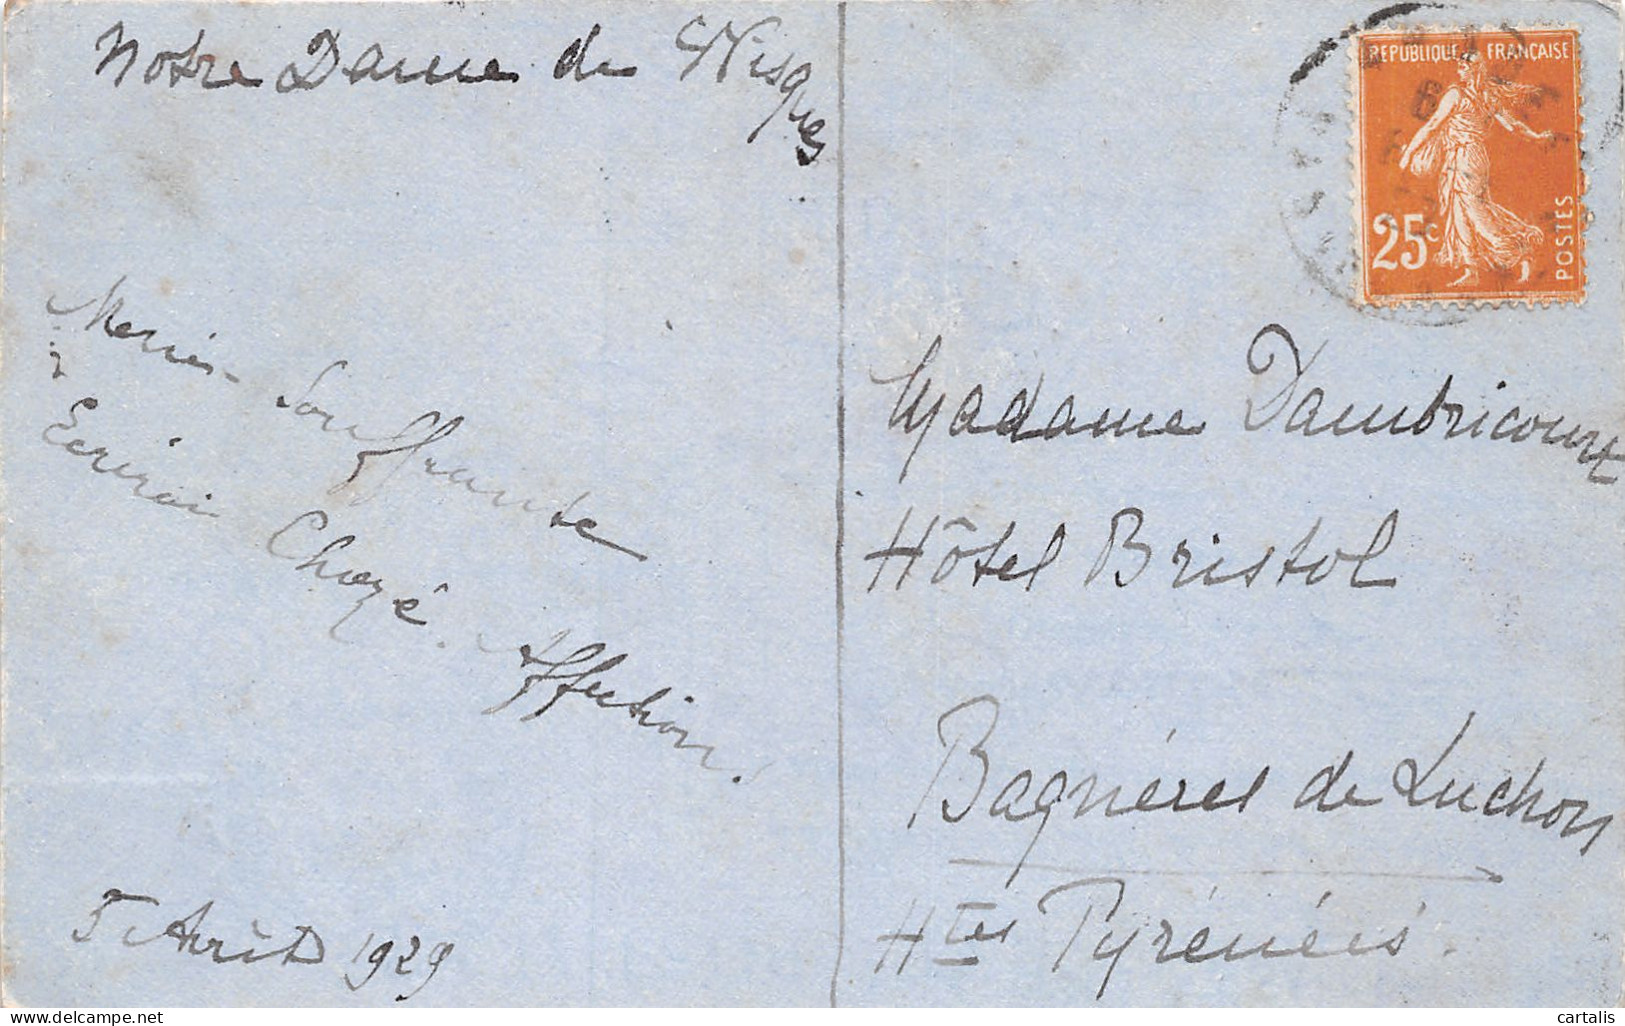 Notre Dame de Wisques
Merci - Souffrante
Ecrirai Chozé. Affection.
5 Août 1929
RÉPUBLIQUE FRANÇAISE
25c
POSTES
Madame Dambricourt
Hôtel Bristol
Bagnéres de Luchon
Htes Pyrénéés.
cartalis
www.delcampe.net